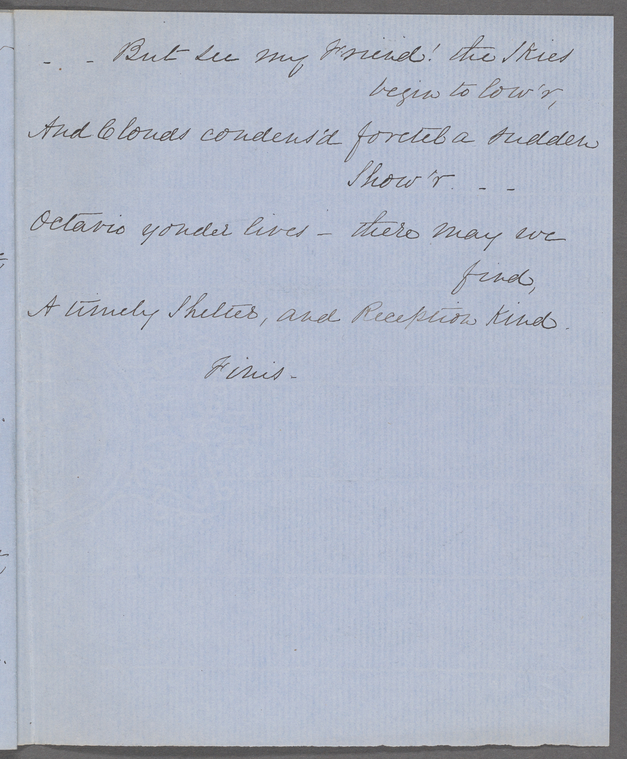 - . - But see my Friend! the Skies
begin to low'r,
And Clouds condens'd foretel a sudden
Show'r. - -
Octavio yonder lives - there may we
find,
A timely Shelter, and Reception Kind.
Finis -